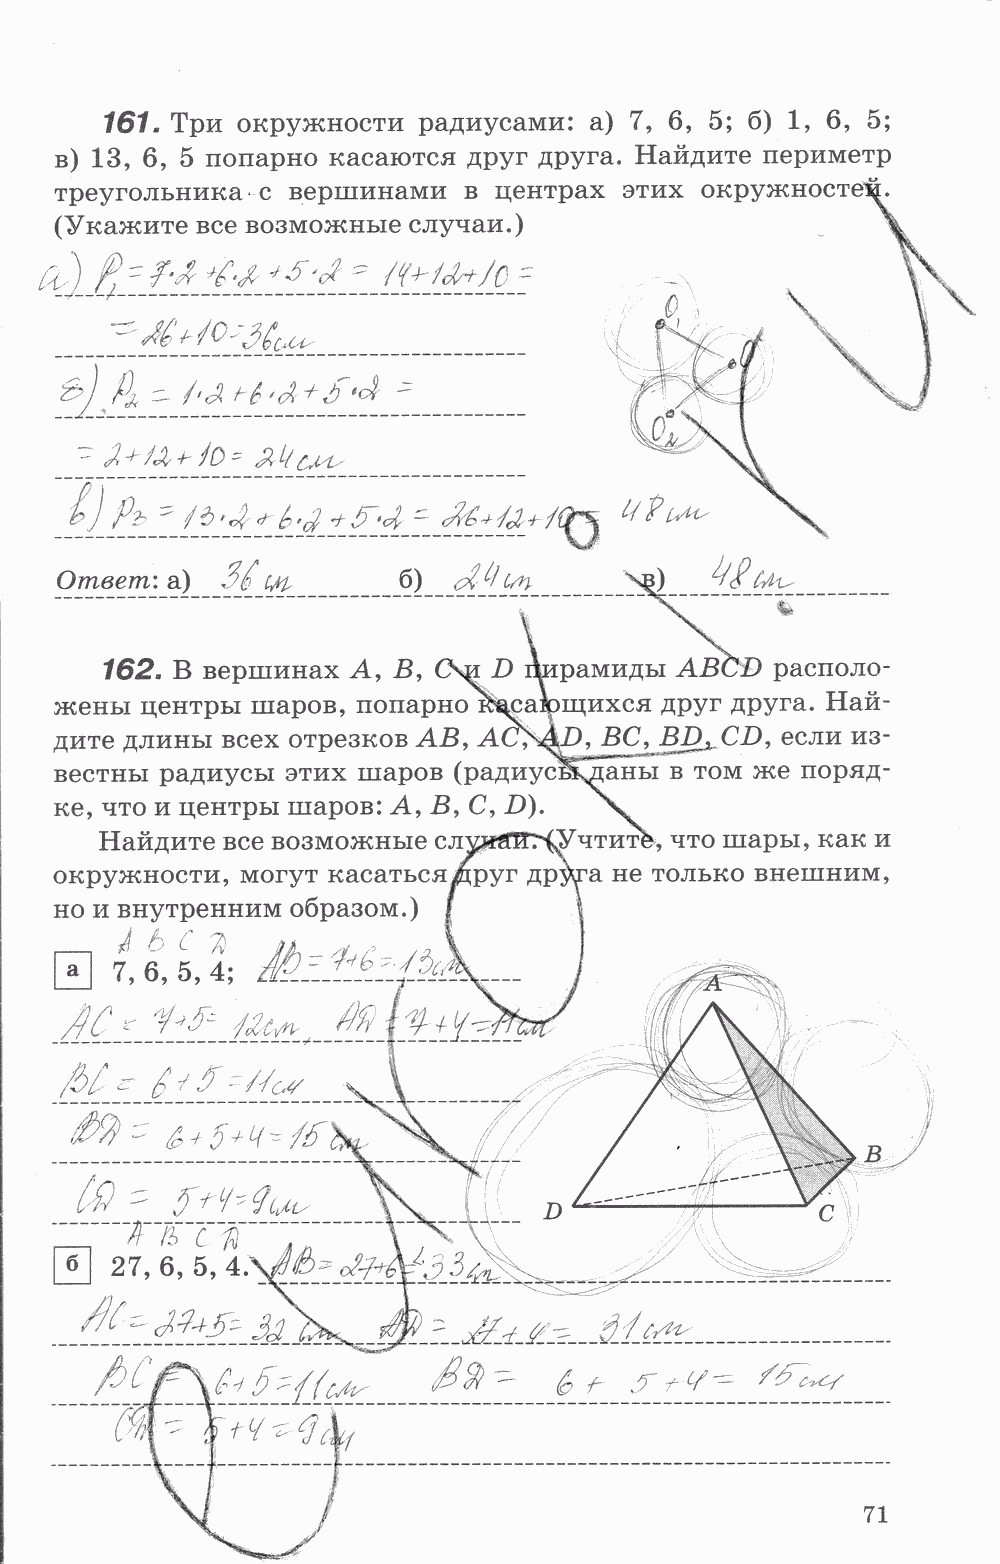 161. Три окружности радиусами: а) 7, 6, 5; б) 1, 6, 5;
в) 13, 6, 5 попарно касаются друг друга. Найдите периметр
треугольника с вершинами в центрах этих окружностей.
(Укажите все возможные случаи.)
а) P₁ = 7·2 + 6·2 + 5·2 = 14+12+10 =
= 26+10=36см
б) P₂ = 1·2+6·2+5·2 =
= 2+12+10= 24см
в) P₃ = 13·2+6·2+5·2 = 26+12+10 = 48см
O₁
O
O₂
Ответ: а) 36 см б) 24 см в) 48 см
162. В вершинах A, B, C и D пирамиды ABCD располо-
жены центры шаров, попарно касающихся друг друга. Най-
дите длины всех отрезков AB, AC, AD, BC, BD, CD, если из-
вестны радиусы этих шаров (радиусы даны в том же поряд-
ке, что и центры шаров: A, B, C, D).
Найдите все возможные случаи. (Учтите, что шары, как и
окружности, могут касаться друг друга не только внешним,
но и внутренним образом.)
A B C D
а 7, 6, 5, 4; AB = 7+6=13см
AC = 7+5= 12см, AD = 7+4=11см
BC = 6+5=11см
BD = 6+5+4=15 см
CD = 5+4=9см
A
B
C
D
A B C D
б 27, 6, 5, 4. AB= 27+6=33см
AC= 27+5= 32 см AD = 27+4= 31см
BC = 6+5=11см BD = 6+ 5+4= 15см
CD = 5+4=9см
71